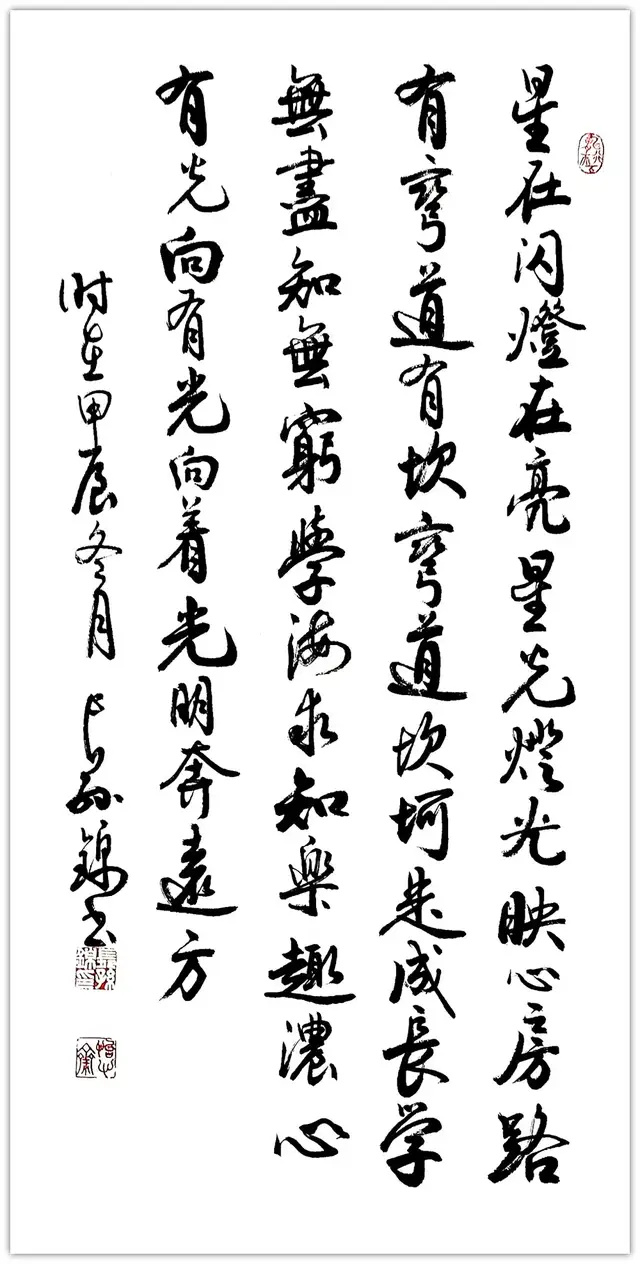 星在闪燈在亮星光燈光映心房路
有弯道有坎弯道坎坷是成長学
無盡知無窮學海求知樂趣濃心
有光向有光向着光明奔遠方
时在甲辰冬月長孙錦书